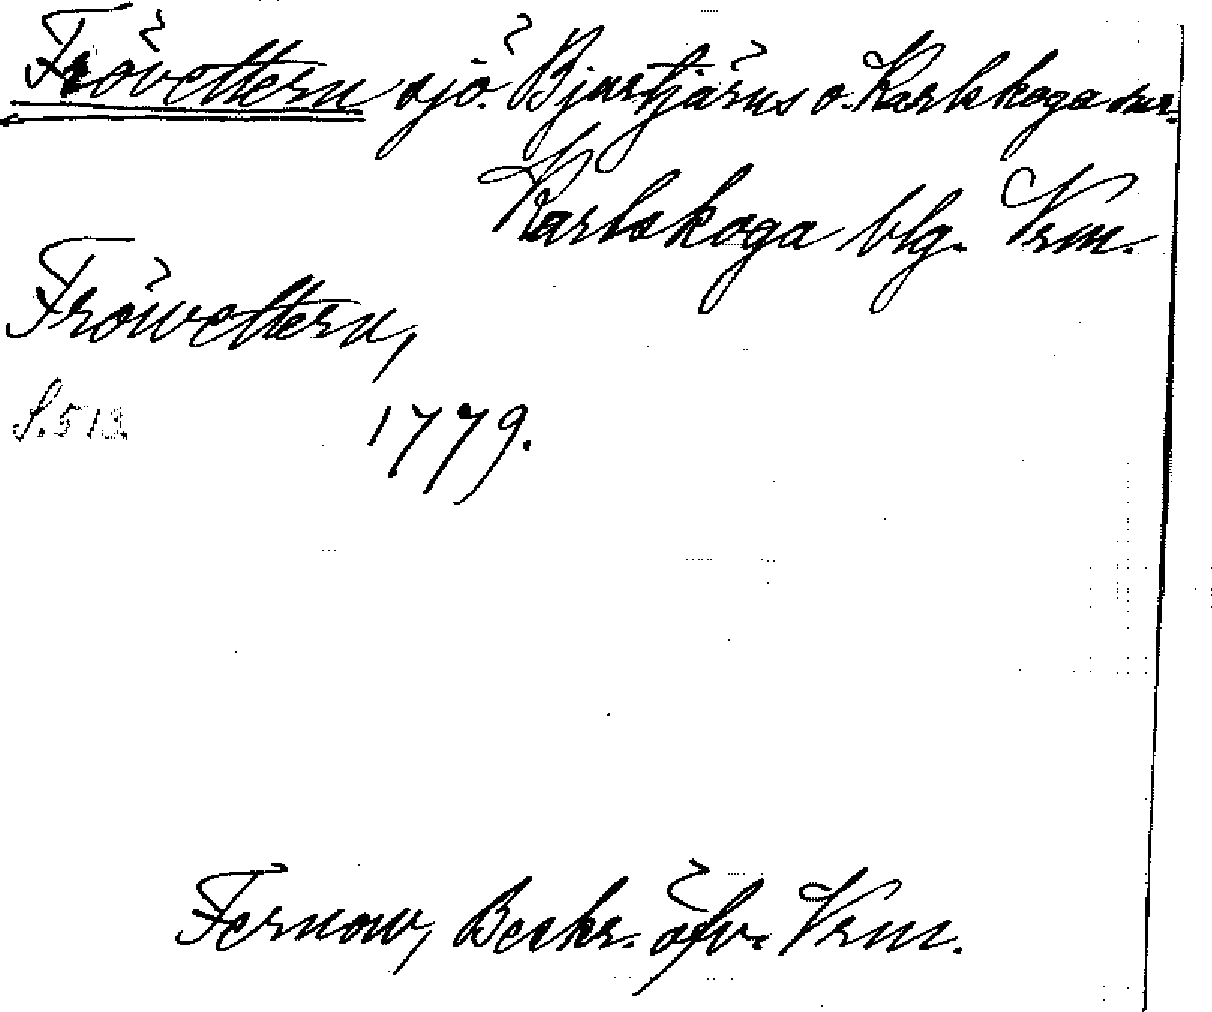 Frövettern sjö. Bjurtjärns o. Karlskoga snr.
Karlskoga blg. Vrm.
Fröwettern,
S. 513.
1779.
Fernow, Beskr. öfv. Vrm.